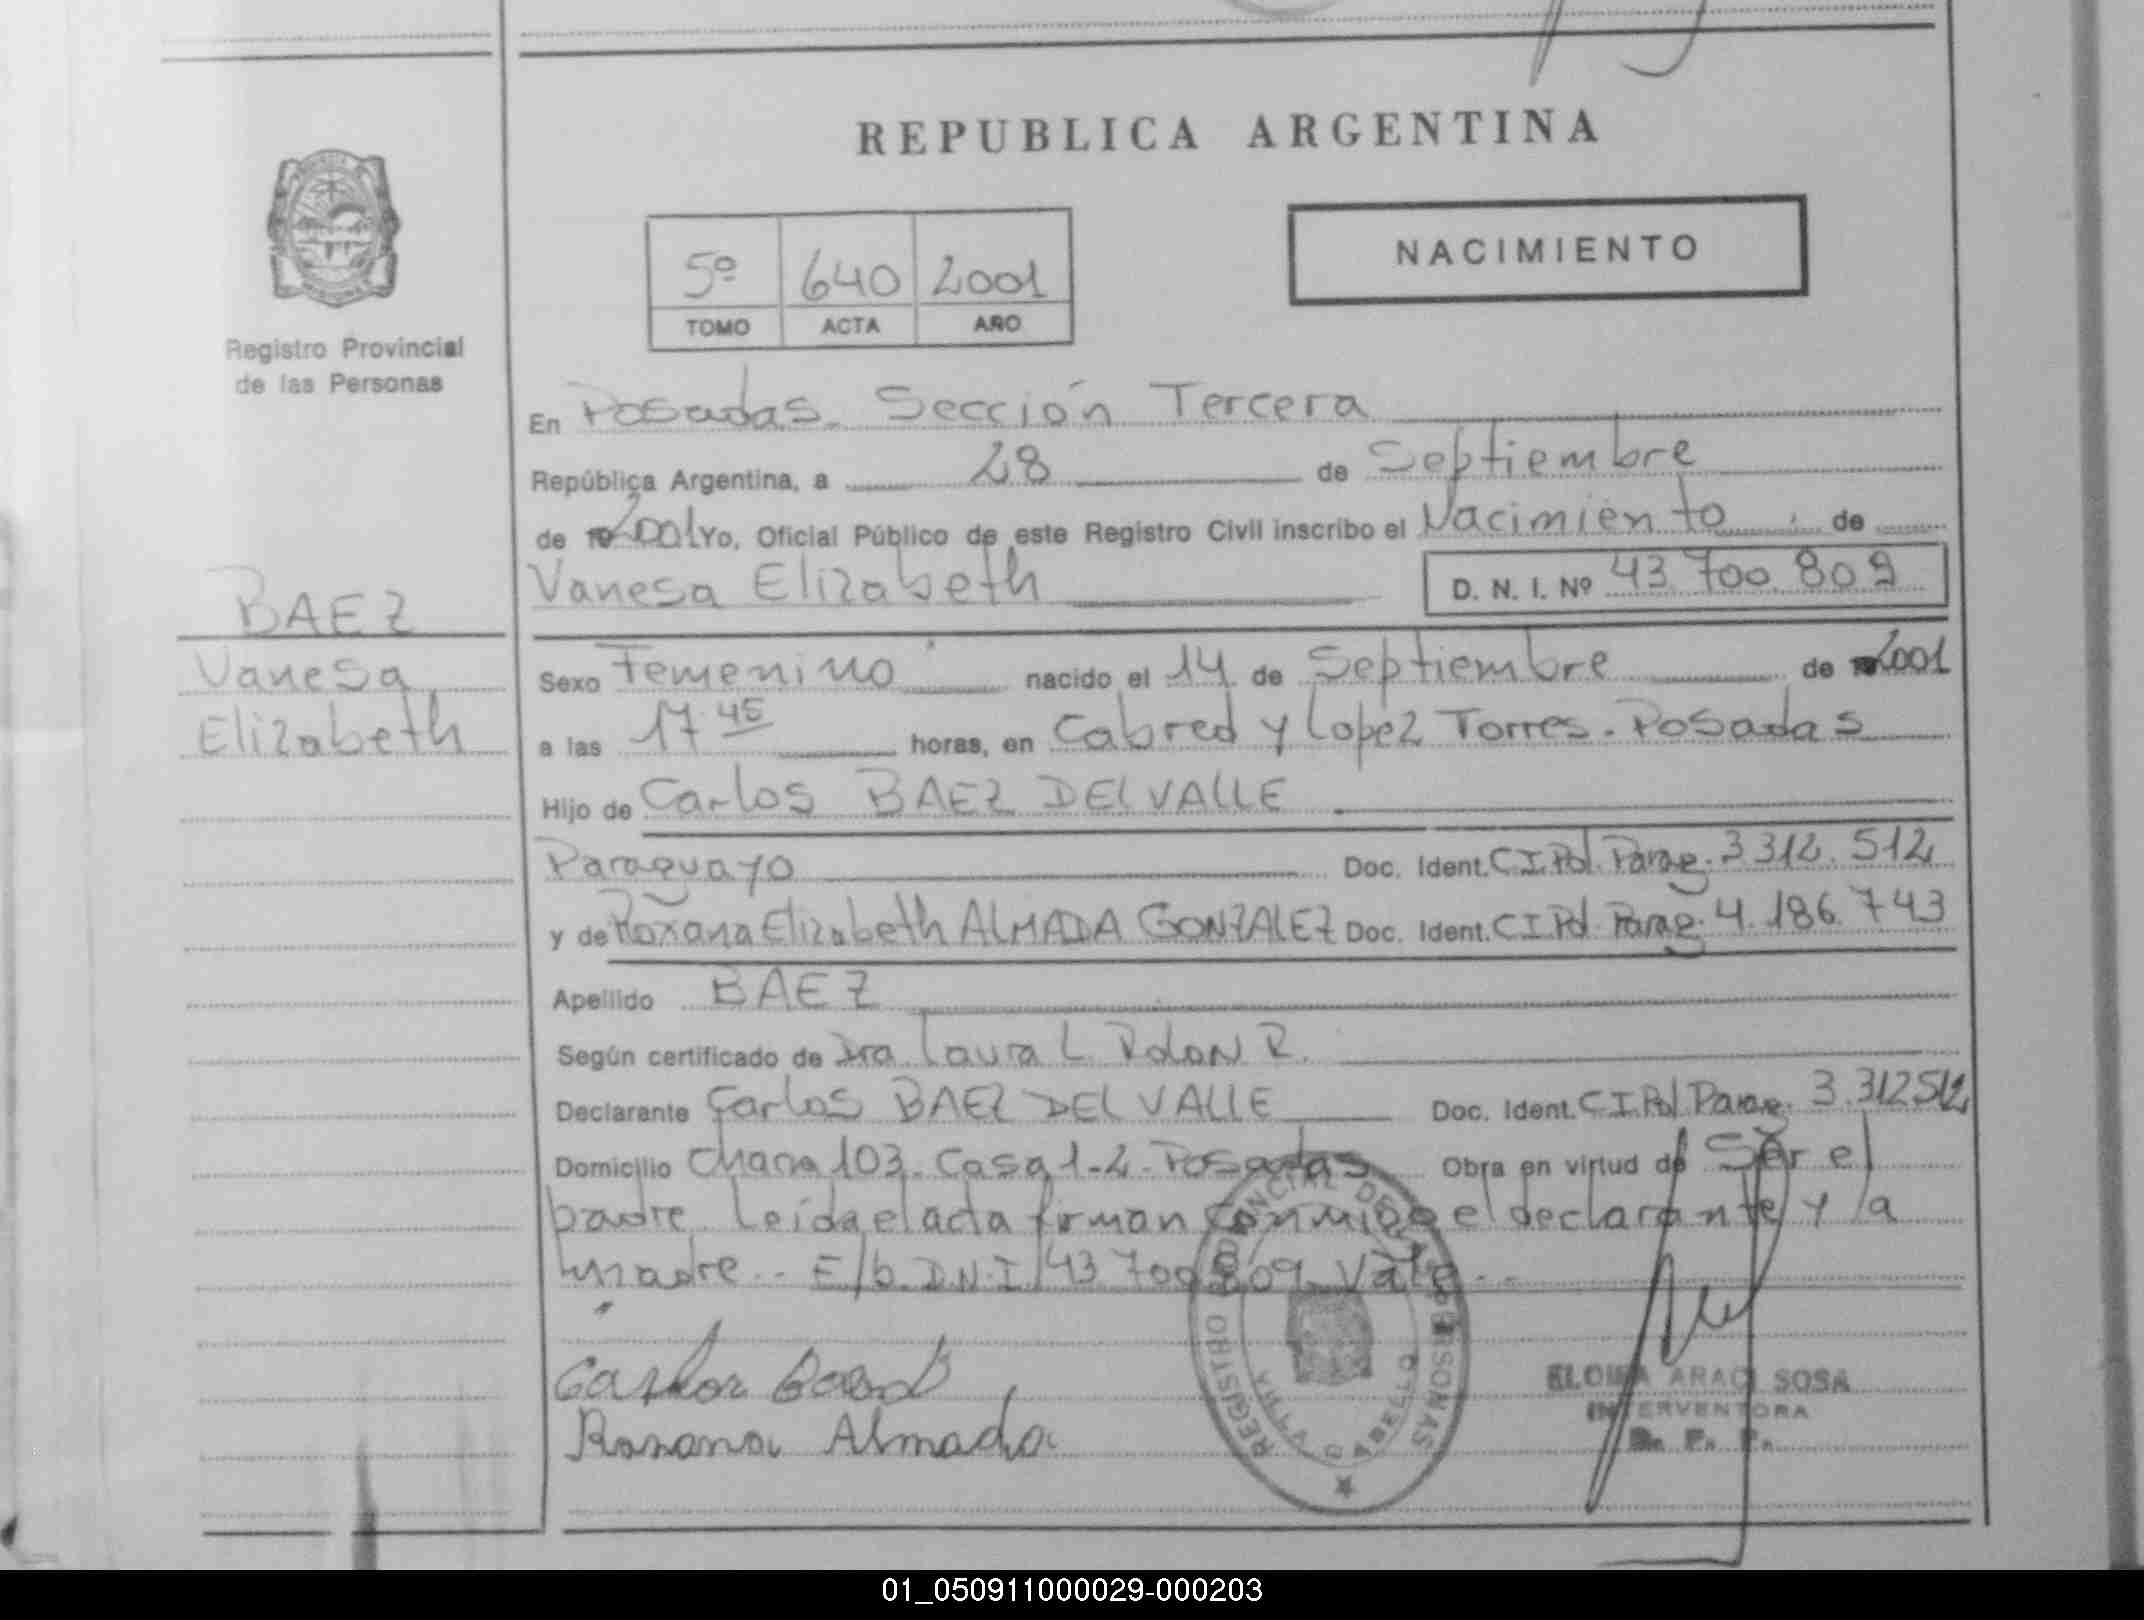 REPUBLICA ARGENTINA
NACIMIENTO
5º 640 2001
TOMO ACTA AÑO
Registro Provincial
de las Personas
En Posadas. Sección Tercera
República Argentina, a 28 de Septiembre
de 2001 Yo, Oficial Público de este Registro Civil inscribo el Nacimiento de
Vanesa Elizabeth D. N. I. Nº 43.700.809
BAEZ
Vanesa
Elizabeth
Sexo Femenino nacido el 14 de Septiembre de 2001
a las 17.45 horas, en Cabred y Lopez Torres. Posadas
Hijo de Carlos BAEZ DEL VALLE
Paraguayo Doc. Ident. C.I. Pol. Parag. 3312.512
y de Roxana Elizabeth ALMADA GONZALEZ Doc. Ident. C I Pol. Parag. 4.186.743
Apellido BAEZ
Según certificado de Dra. Laura L. Rolon R.
Declarante Carlos BAEZ DEL VALLE Doc. Ident. C.I. Pol. Parag. 3.312512
Domicilio Chacra 103. Casa 1-2. Posadas Obra en virtud de Ser el
padre. Leida el acta firman conmigo el declarante y la
madre.- E/b. D.N.I 43.700.809. Vale.-
Carlos Baez
Roxana Almada
REGISTRO PROVINCIAL DE LAS PERSONAS
VILLA CABELLO
ELOISA ARACI SOSA
INTERVENTORA
01_050911000029-000203